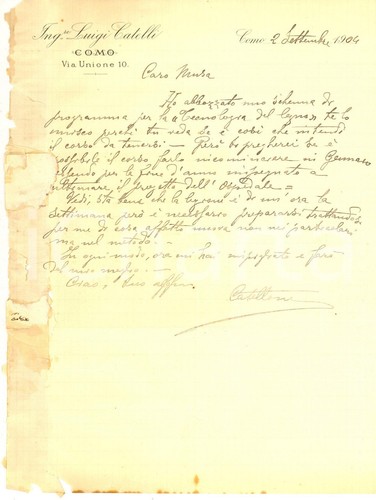 Ing.re Luigi Catelli
COMO
Via Unione 10.
Como 2 Settembre 1904
Caro Musa
Ho abbozzato uno schema di
programma per la "Tecnologia del legno" te lo
perché tu veda se è così che intendi
il corso da tenersi — Però ti pregherei se è
possibile il corso farlo incominciare in Gennaio
essendo per la fine d'anno impegnato a
ultimare il progetto dell'Ospedale =
Vedi, sta bene che la lezione è di un'ora la
settimana però è necessario prepararsi trattandosi
per me di cosa affatto nuova non nei particolari
ma nel metodo. —
In ogni modo, ora mi hai impegnato e farò
del mio meglio. —
Ciao, tuo affmo